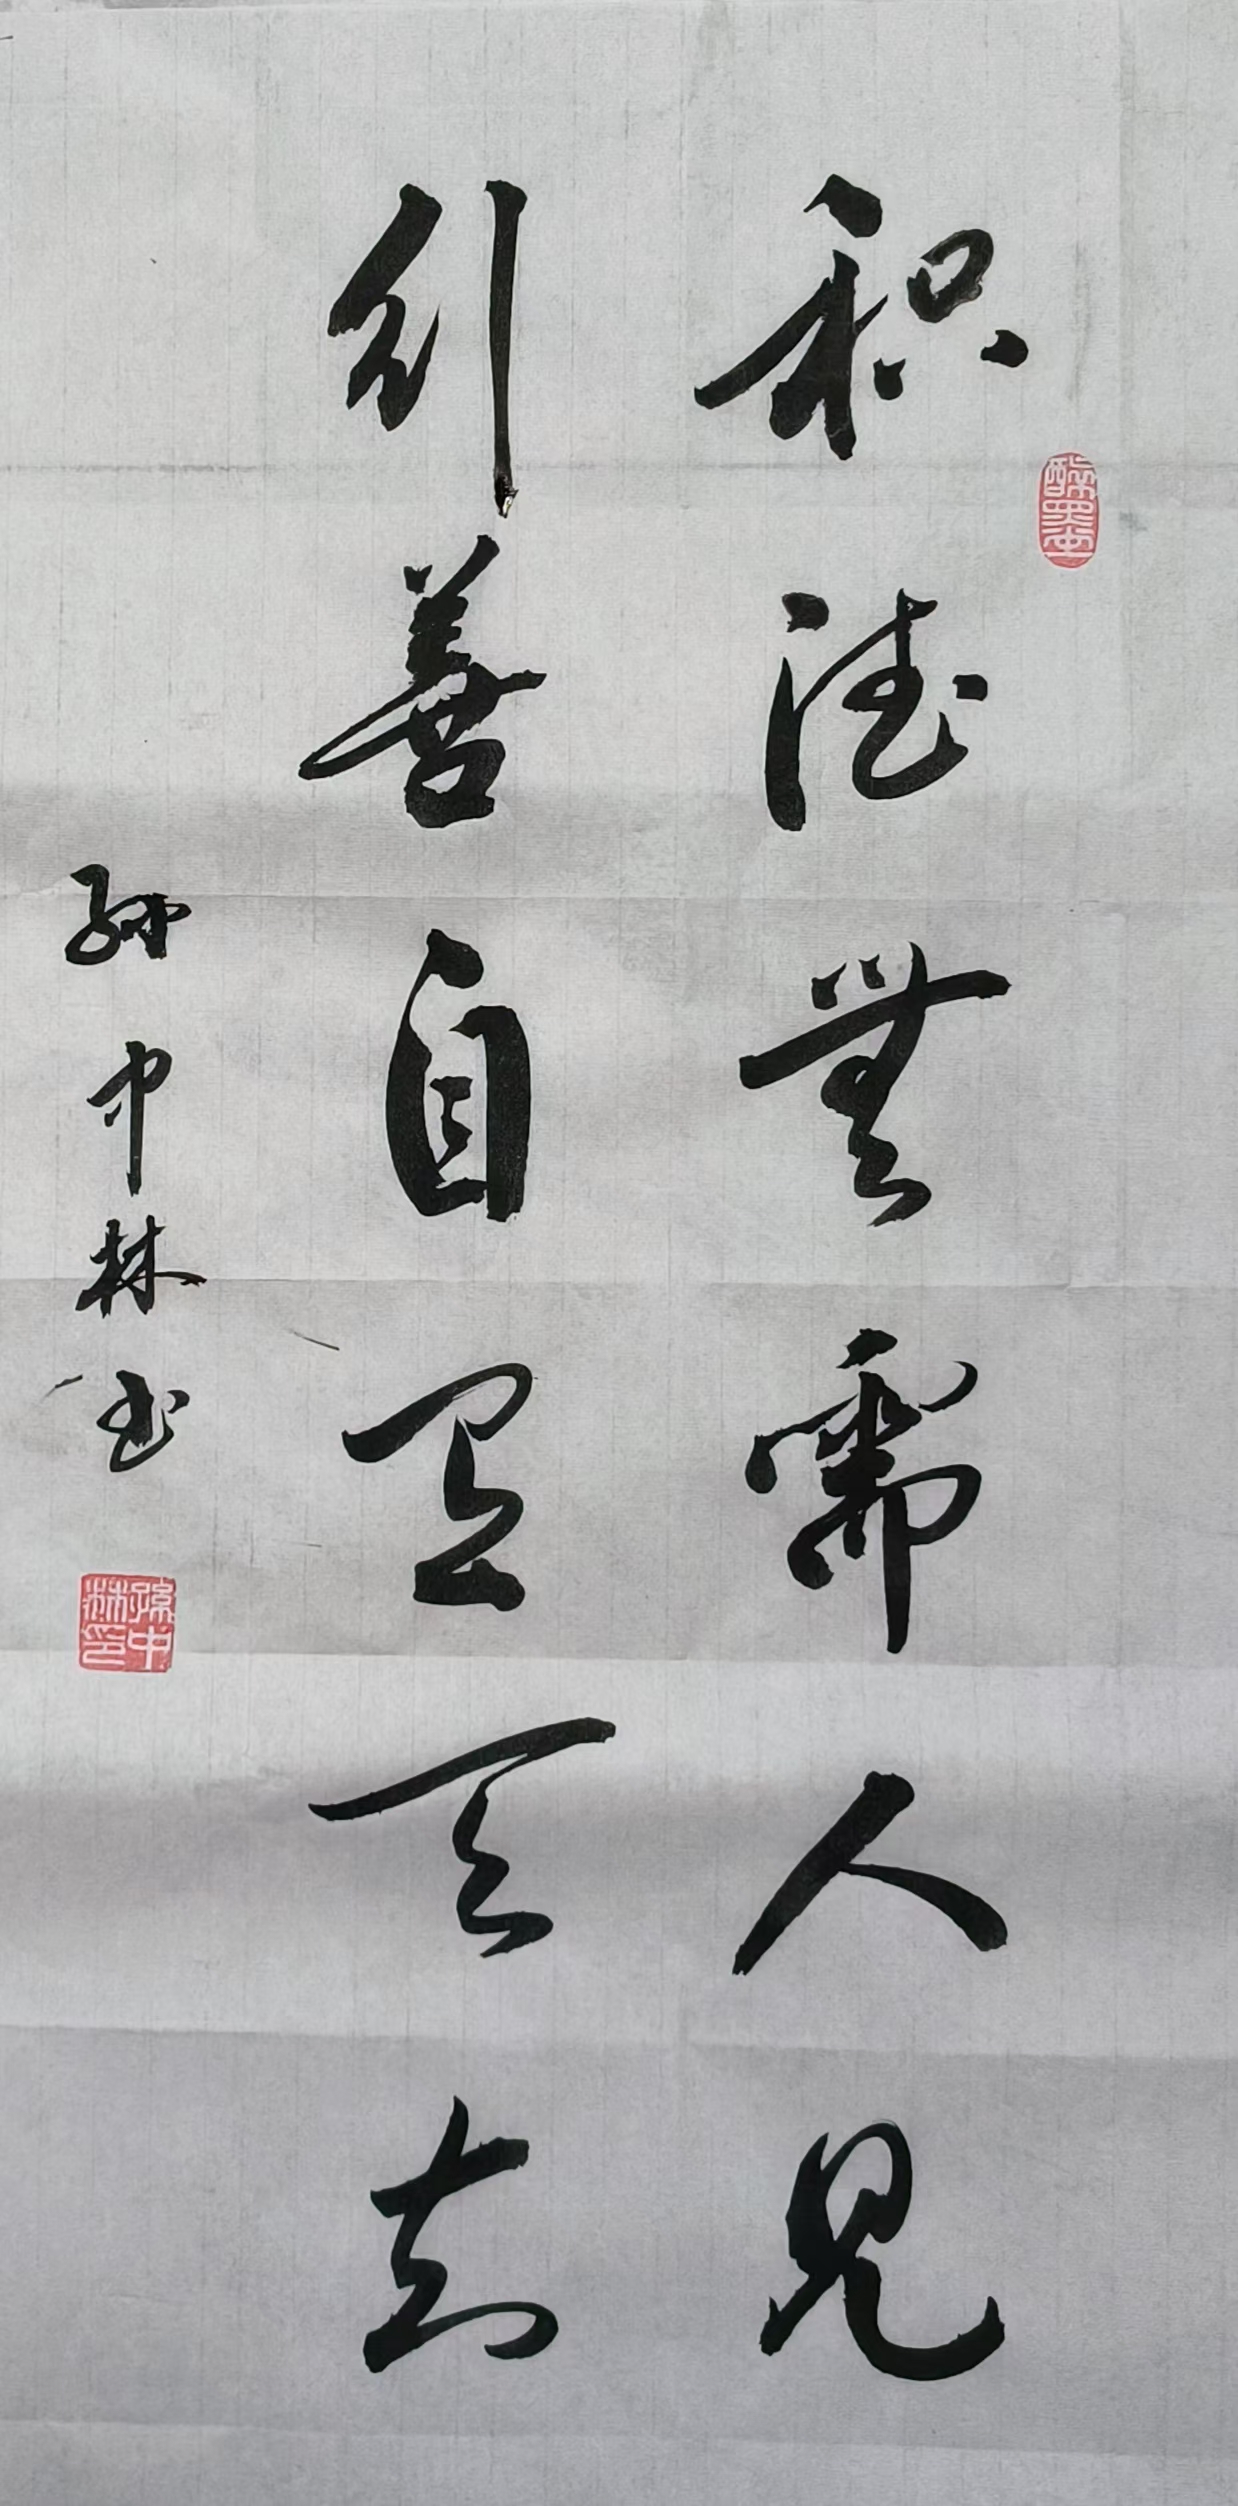 积德無需人見
行善自有天知
孙中林书
孫中林印